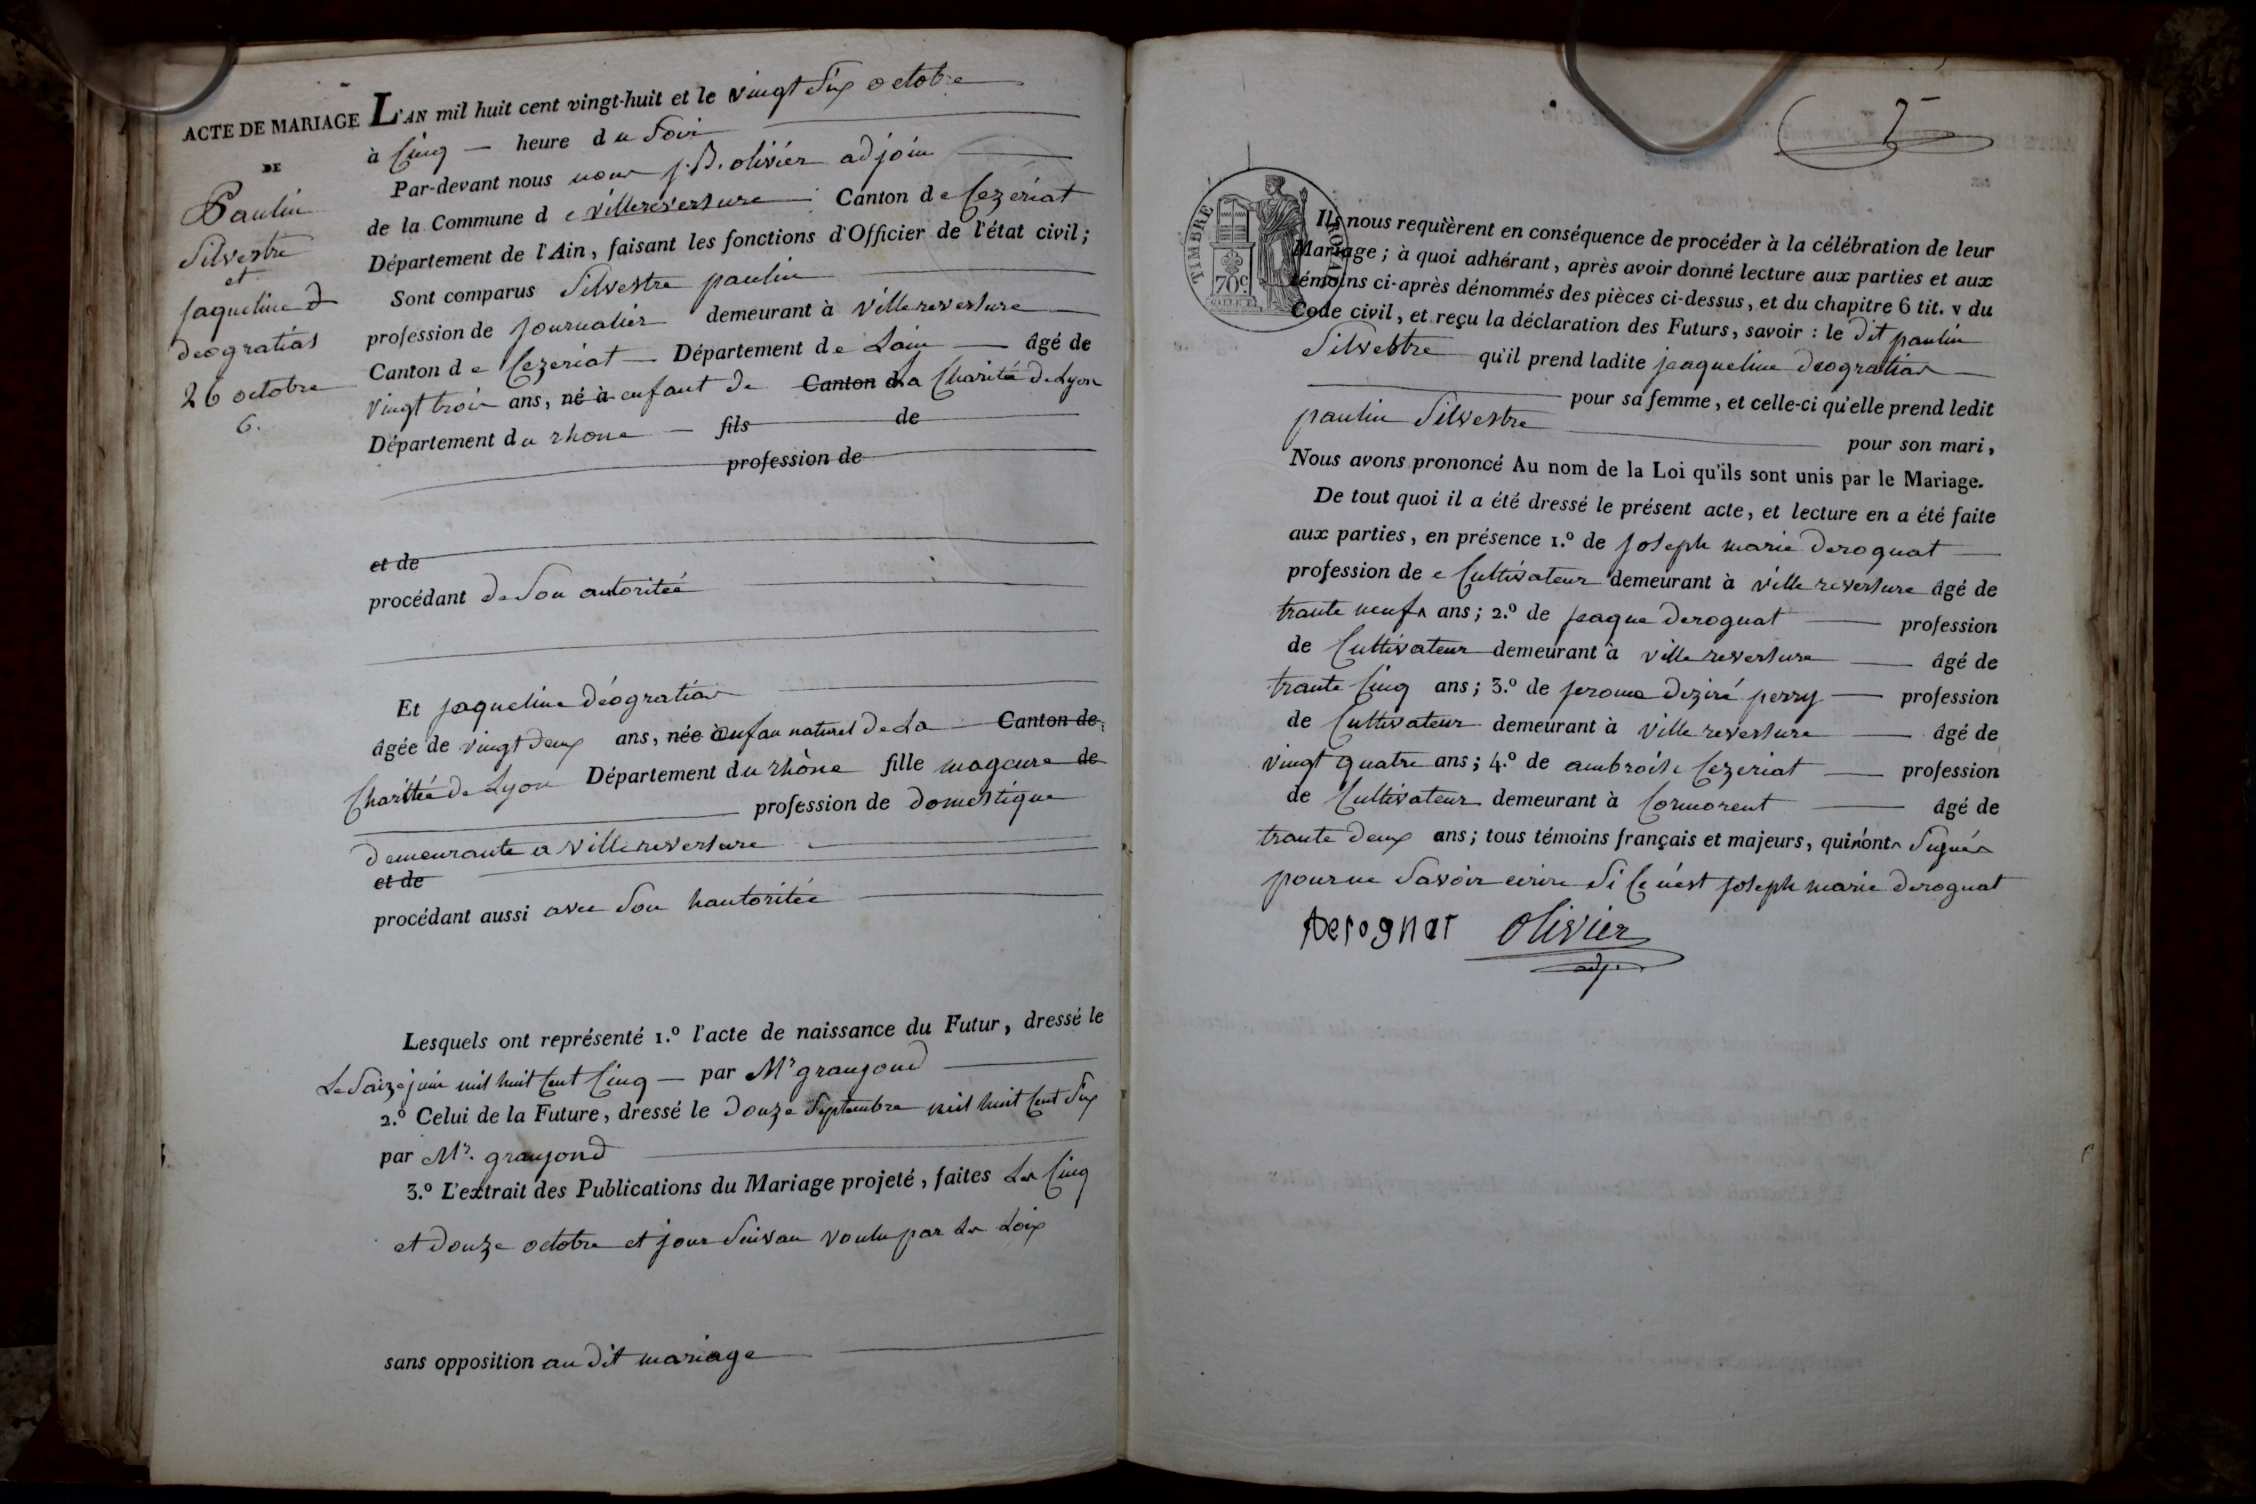 ACTE DE MARIAGE
DE
Paulin
Silvestre
et
jaqueline D
deogratias
26 octobre
6.
L'AN mil huit cent vingt-huit et le vingt Six octobre
à Cinq heure du Soir
Par-devant nous nous J.B. olivier adjoin
de la Commune de villereversure Canton de Cezeriat
Département de l'Ain, faisant les fonctions d'Officier de l'état civil;
Sont comparus Silvestre paulin
profession de journalier demeurant à villereversure
Canton de Cezeriat Département de Lain âgé de
vingt trois ans, né à enfant de Canton de La Charité de Lyon
Département du rhone fils de
profession de
et de
procédant de Son autoritée
Et jaqueline déogratias
âgée de vingt deux ans, née à enfan naturel de La Canton de
Charitée de Lyon Département du rhône fille mageure de
profession de domestique
demeurante a villereversure
et de
procédant aussi avec Son hautoritée
Lesquels ont représenté 1.º l'acte de naissance du Futur, dressé le
Le Saize juin mil huit Cent Cinq par Mr
2.º Celui de la Future, dressé le douze Septembre mil huit Cent Six
par Mr.
3.º L'extrait des Publications du Mariage projeté, faites Les Cinq
et douze octobre et jour Suivan voulu par La Loix
sans opposition au dit mariage
5
TIMBRE ROYAL
70c
Ils nous requièrent en conséquence de procéder à la célébration de leur
Mariage; à quoi adhérant, après avoir donné lecture aux parties et aux
témoins ci-après dénommés des pièces ci-dessus, et du chapitre 6 tit. v du
Code civil, et reçu la déclaration des Futurs, savoir: le dit paulin
Silvestre qu'il prend ladite jeaqueline deogratias
pour sa femme, et celle-ci qu'elle prend ledit
paulin Silvestre pour son mari,
Nous avons prononcé Au nom de la Loi qu'ils sont unis par le Mariage.
De tout quoi il a été dressé le présent acte, et lecture en a été faite
aux parties, en présence 1.º de joseph marie derognat
profession de Cultivateur demeurant à villereversure âgé de
trante neuf ans; 2.º de jeaque derognat profession
de Cultivateur demeurant à villereversure âgé de
trante Cinq ans; 3.º de jerome deziré perry profession
de Cultivateur demeurant à villereversure âgé de
vingt quatre ans; 4.º de ambroise Cezeriat profession
de Cultivateur demeurant à Cormorent âgé de
trante deux ans; tous témoins français et majeurs, qui n'ont Signés
pour ne Savoir ecrire Si Ce n'est joseph marie derognat
derognat olivier
adj.